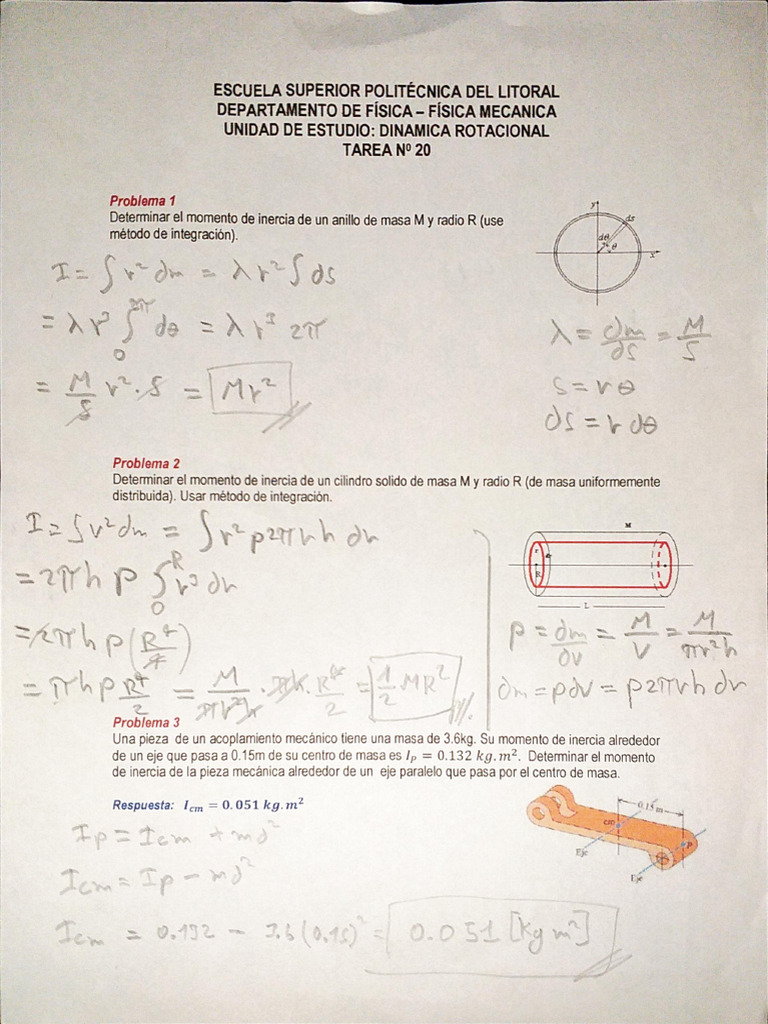 ESCUELA SUPERIOR POLITÉCNICA DEL LITORAL
DEPARTAMENTO DE FÍSICA – FÍSICA MECANICA
UNIDAD DE ESTUDIO: DINAMICA ROTACIONAL
TAREA Nº 20
Problema 1
Determinar el momento de inercia de un anillo de masa M y radio R (use
método de integración).
y
ds
dθ
θ
x
I = ∫ r² dm = λ r² ∫ ds
= λ r³ ∫₀^2π dθ = λ r³ 2π
= M/S r² · S = Mr²
λ = dm/ds = M/S
S = r θ
ds = r dθ
Problema 2
Determinar el momento de inercia de un cilindro solido de masa M y radio R (de masa uniformemente
distribuida). Usar método de integración.
I = ∫ r² dm = ∫ r² ρ 2π r h dr
= 2π h ρ ∫₀^R r³ dr
= 2π h ρ (R⁴/4)
= π h ρ R⁴/2 = M/πr²h · πh · R⁴/2 = 1/2 MR²
M
r
R
L
ρ = dm/dv = M/V = M/πr²h
dm = ρdv = ρ 2π r h dr
Problema 3
Una pieza de un acoplamiento mecánico tiene una masa de 3.6kg. Su momento de inercia alrededor
de un eje que pasa a 0.15m de su centro de masa es I_P = 0.132 kg.m². Determinar el momento
de inercia de la pieza mecánica alrededor de un eje paralelo que pasa por el centro de masa.
Respuesta: I_cm = 0.051 kg.m²
0.15 m
cm
P
Eje
Eje
Ip = Icm + md²
Icm = Ip − md²
Icm = 0.132 − 3.6 (0.15)² = 0.051 [kg m²]